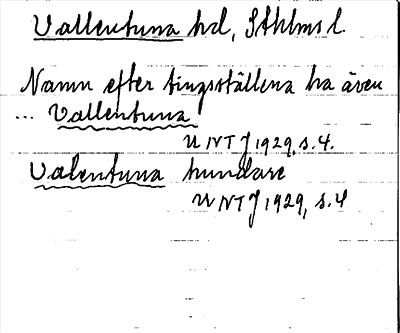 Vallentuna hd, Sthlms l.
Namn efter tingsställena ha även
... Vallentuna
UNTJ 1929, s. 4.
Valentuna hundare
UNTJ 1929, s. 4